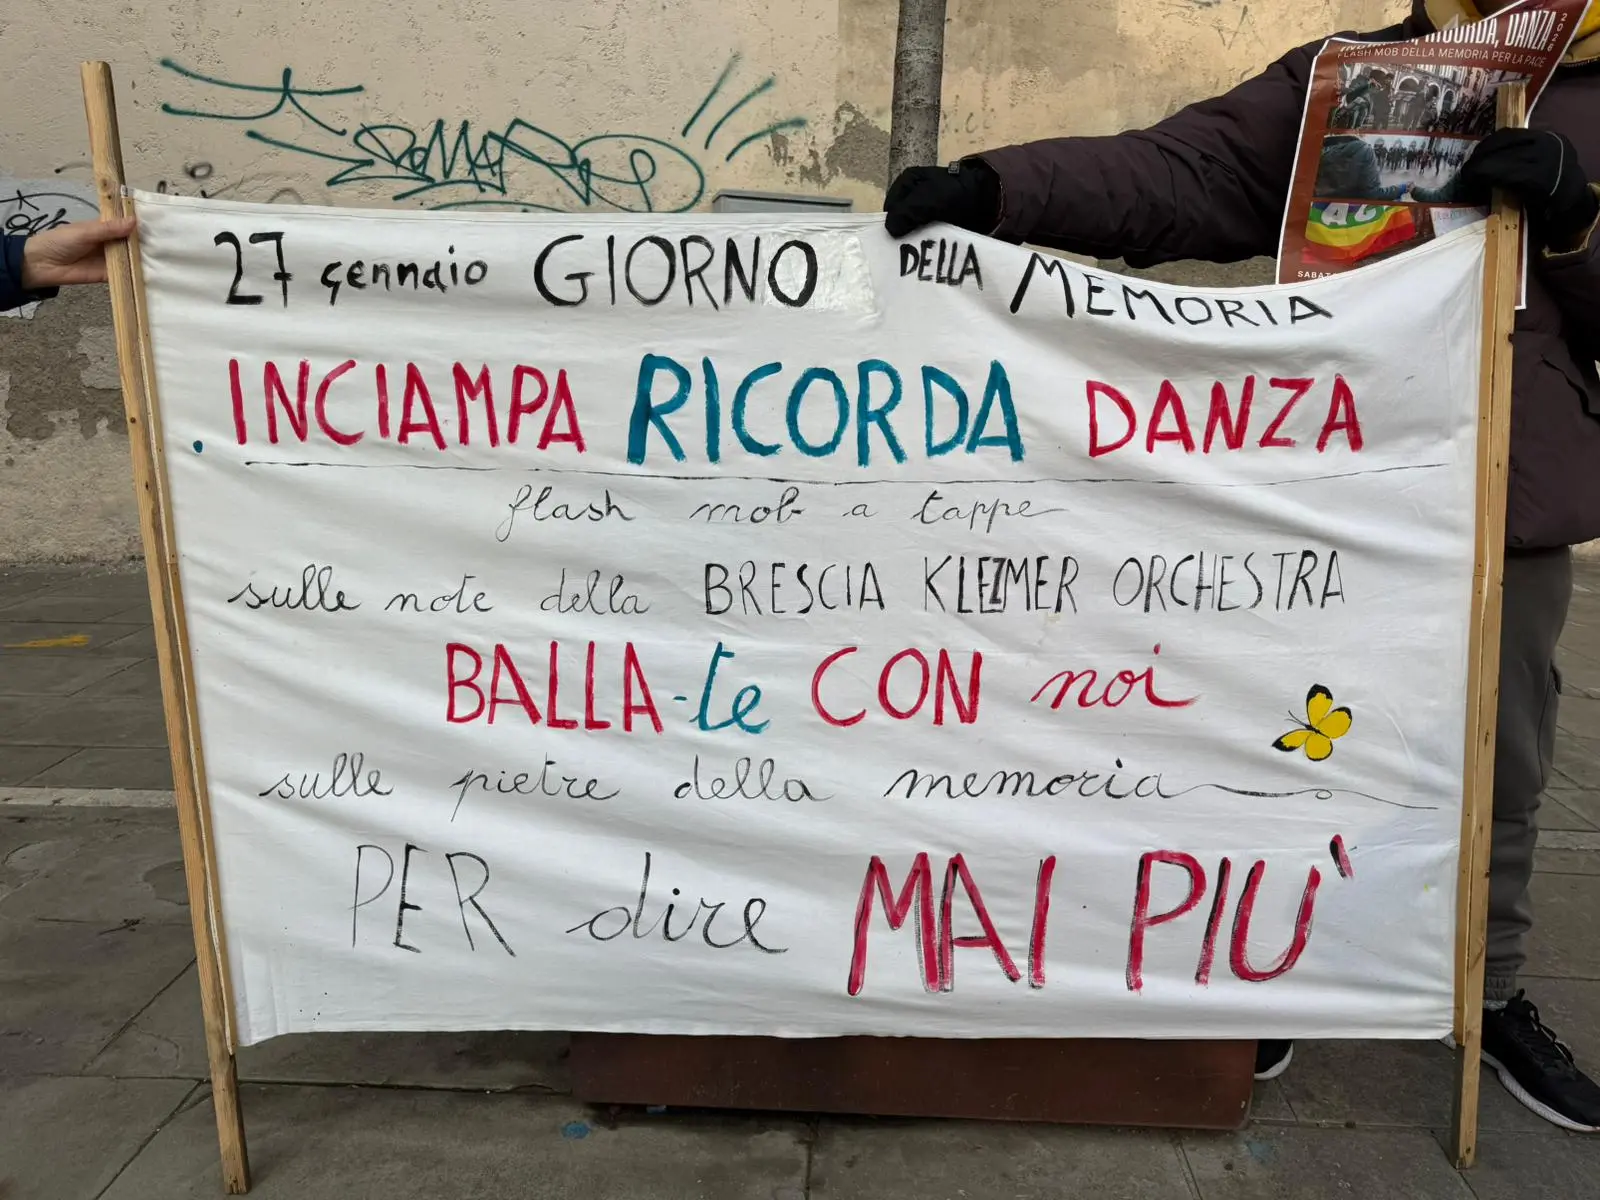 INCIAMPA, RICORDA, DANZA
2026
FLASH MOB DELLA MEMORIA PER LA PACE
27 gennaio GIORNO DELLA MEMORIA
INCIAMPA RICORDA DANZA
flash mob a tappe
sulle note della BRESCIA KLEZMER ORCHESTRA
BALLA-te CON noi
sulle pietre della memoria
PER dire MAI PIU'